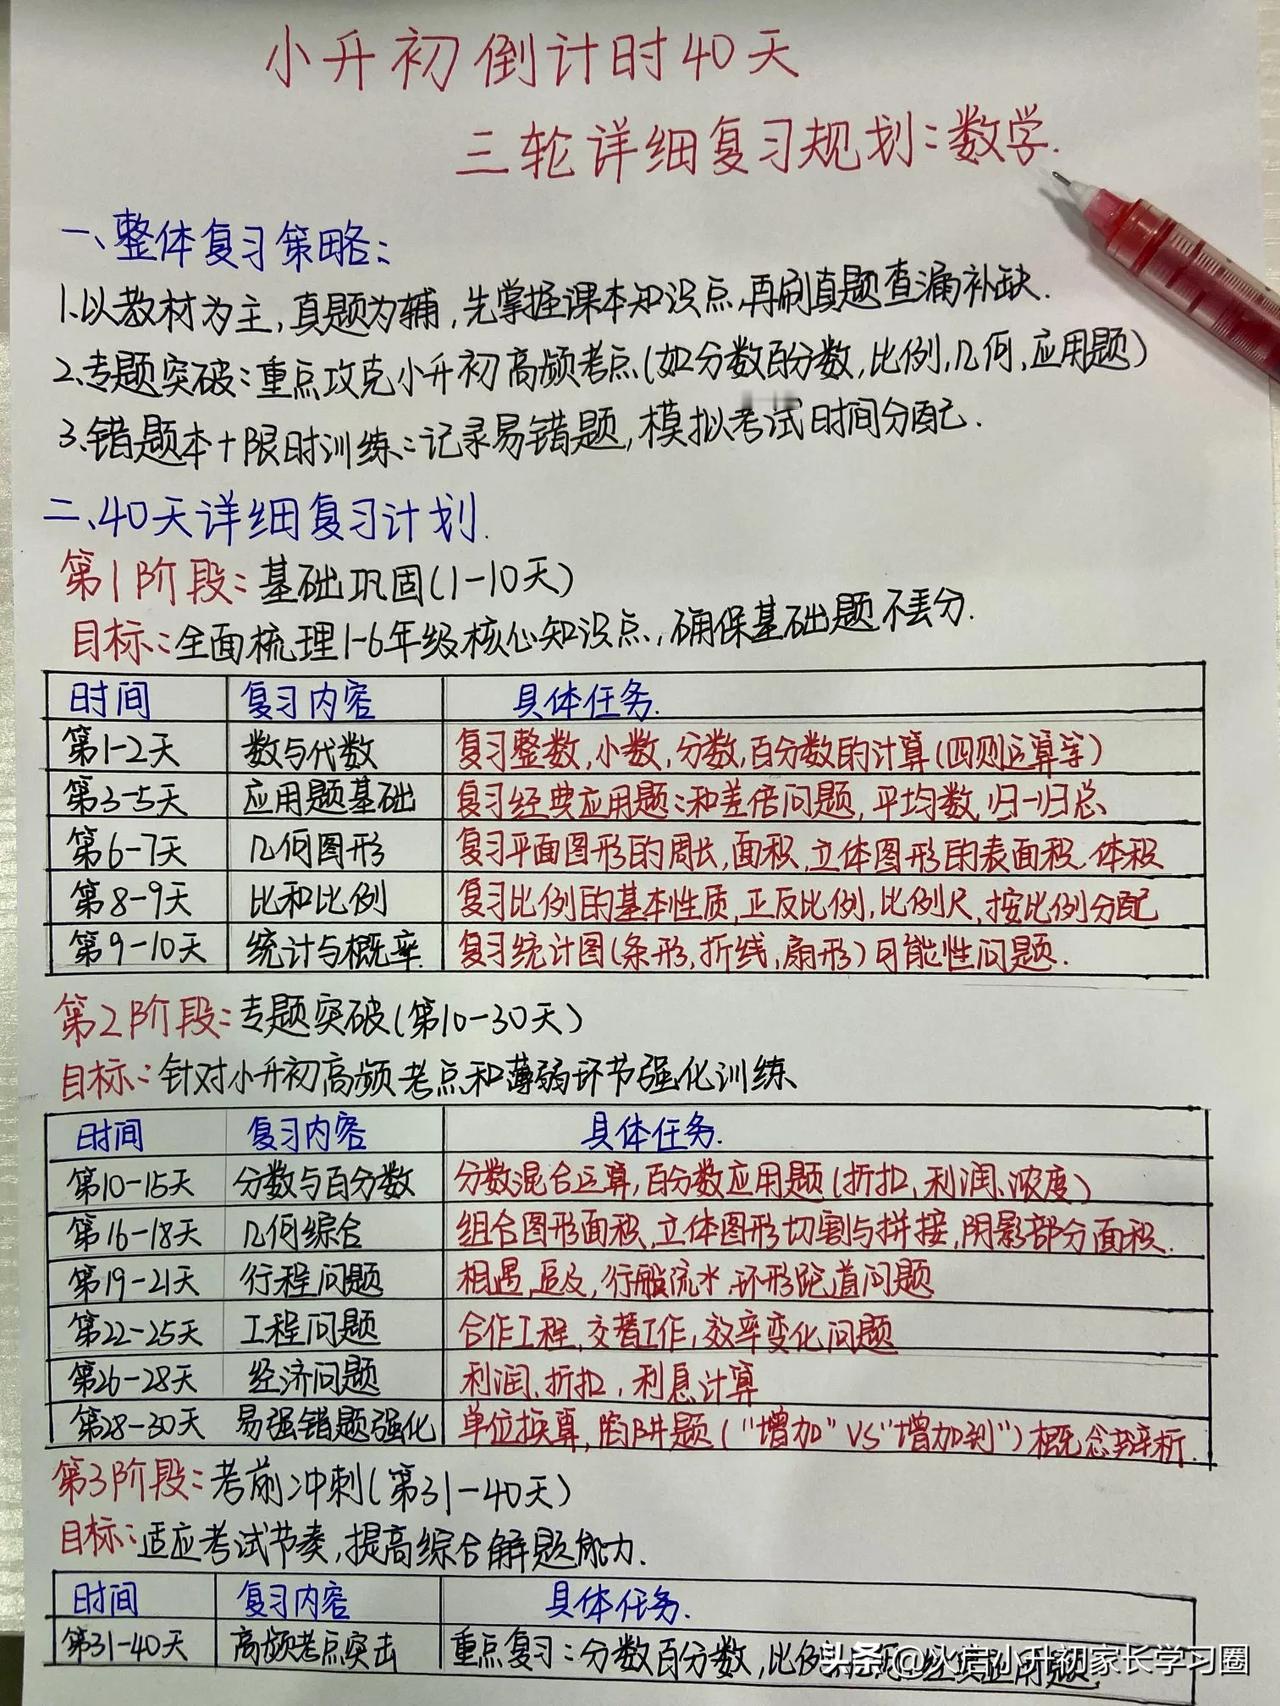 小升初倒计时40天
三轮详细复习规划:数学.
一、整体复习策略:
1.以教材为主,真题为辅,先掌握课本知识点,再刷真题查漏补缺.
2.专题突破:重点攻克小升初高频考点(如分数百分数,比例,几何,应用题)
3.错题本+限时训练:记录易错题,模拟考试时间分配.
二、40天详细复习计划.
第1阶段:基础巩固(1-10天)
目标:全面梳理1-6年级核心知识点,确保基础题不丢分.
时间 复习内容 具体任务.
第1-2天 数与代数 复习整数,小数,分数,百分数的计算(四则运算等)
第3-5天 应用题基础 复习经典应用题:和差倍问题,平均数,归一归总
第6-7天 几何图形 复习平面图形的周长,面积,立体图形的表面积.体积
第8-9天 比和比例 复习比例的基本性质,正反比例,比例尺,按比例分配
第9-10天 统计与概率. 复习统计图(条形,折线,扇形)可能性问题.
第2阶段:专题突破(第10-30天)
目标:针对小升初高频考点和薄弱环节强化训练
时间 复习内容 具体任务.
第10-15天 分数与百分数 分数混合运算,百分数应用题(折扣、利润、浓度)
第16-18天 几何综合 组合图形面积,立体图形切割与拼接,阴影部分面积.
第19-21天 行程问题 相遇,追及,行船流水,环形跑道问题
第22-25天 工程问题 合作工程,交替工作,效率变化问题
第26-28天 经济问题 利润、折扣,利息计算
第28-30天 易强错题强化 单位换算,陷阱题("增加"VS"增加到")概念辨析.
第3阶段:考前冲刺(第31-40天)
目标:适应考试节奏,提高综合解题能力.
时间 复习内容 具体任务.
第31-40天 高频考点突击 重点复习:分数百分数,比例应用题.
头条@小升初家长学习圈